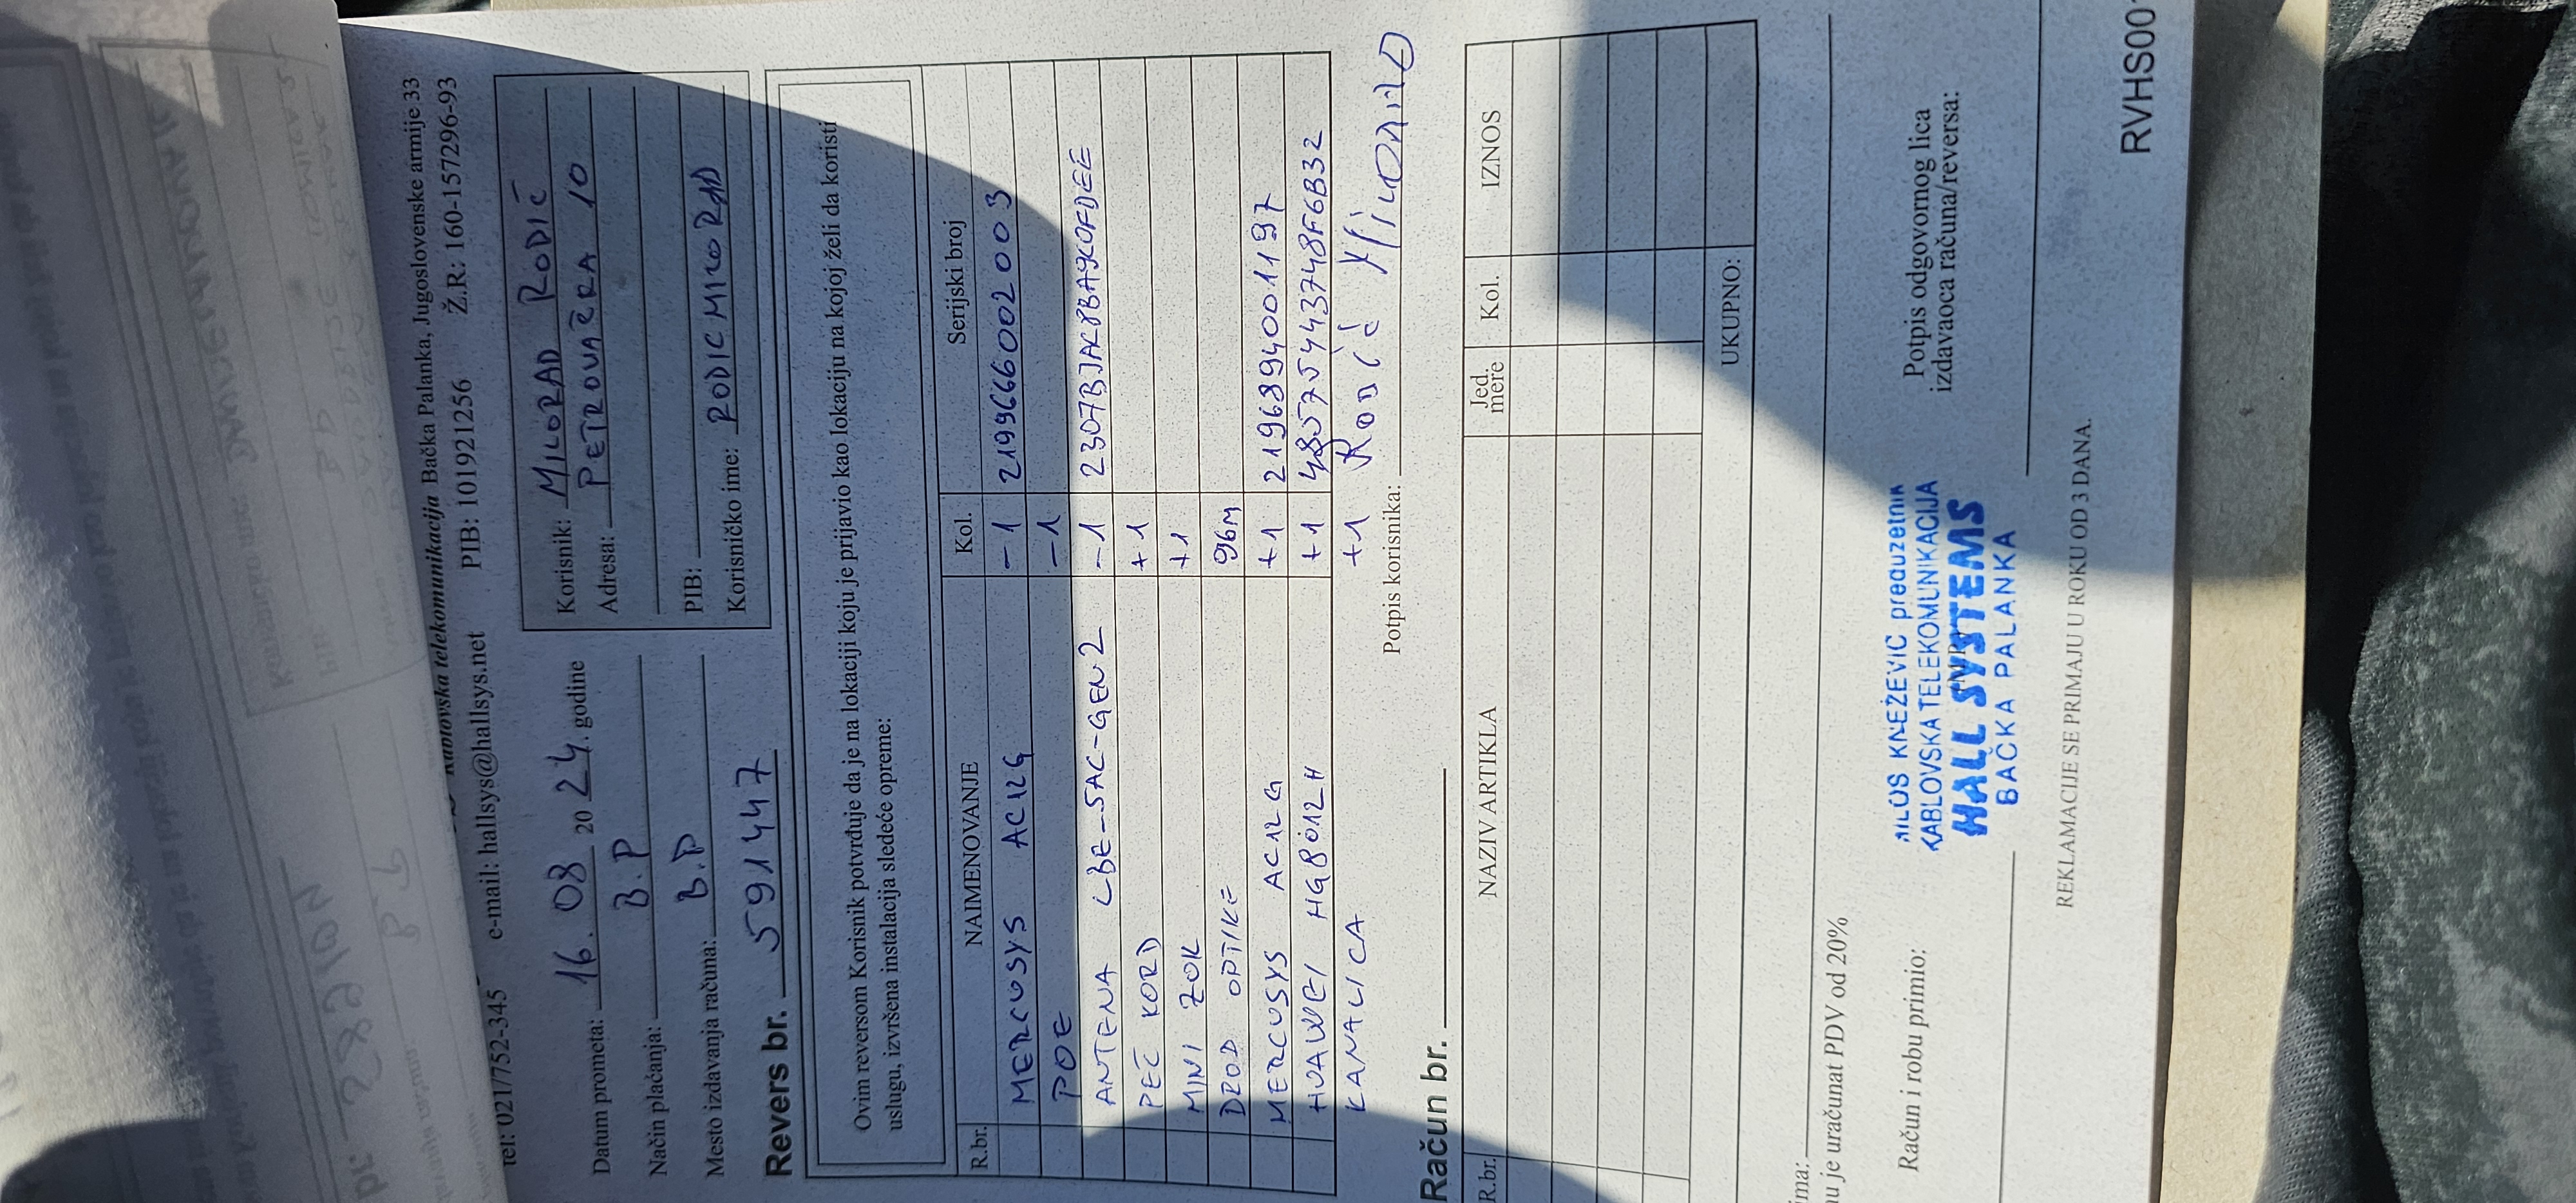 Kablovska telekomunikacija Bačka Palanka, Jugoslovenske armije 33
tel: 021/752-345 e-mail: hallsys@hallsys.net PIB: 101921256 Ž.R: 160-1572296-93
Datum prometa: 16. 08 2024. godine
Način plaćanja: B.P
Mesto izdavanja računa: B.P
Korisnik: MILORAD RODIĆ
Adresa: PETROVAČKA 10
PIB:
Korisničko ime: RODICMILORAD
Revers br. 591447
Ovim reversom Korisnik potvrđuje da je na lokaciji koju je prijavio kao lokaciju na kojoj želi da koristi
uslugu, izvršena instalacija sledeće opreme:
R.br. NAIMENOVANJE Kol. Serijski broj
MERCUSYS AC12G -1 2199666002003
POE -1
ANTENA LBE-5AC-GEN2 -1 2307BJAC8BA9COFDEE
PEČ KORD +1
MINI ZOK +1
DROP OPTIKE 96M
MERCUSYS AC12G +1 2196894001197
HUAWEI HG8012H +1 48575443748F6B32
KANALICA +1
Potpis korisnika: Rodić Milorad
Račun br.
R.br. NAZIV ARTIKLA Jed. mere Kol. IZNOS
UKUPNO:
ima:
nu je uračunat PDV od 20%
Račun i robu primio:
MILOŠ KNEŽEVIĆ preduzetnik
KABLOVSKA TELEKOMUNIKACIJA
HALL SYSTEMS
BAČKA PALANKA
Potpis odgovornog lica
izdavaoca računa/reversa:
REKLAMACIJE SE PRIMAJU U ROKU OD 3 DANA.
RVHS001